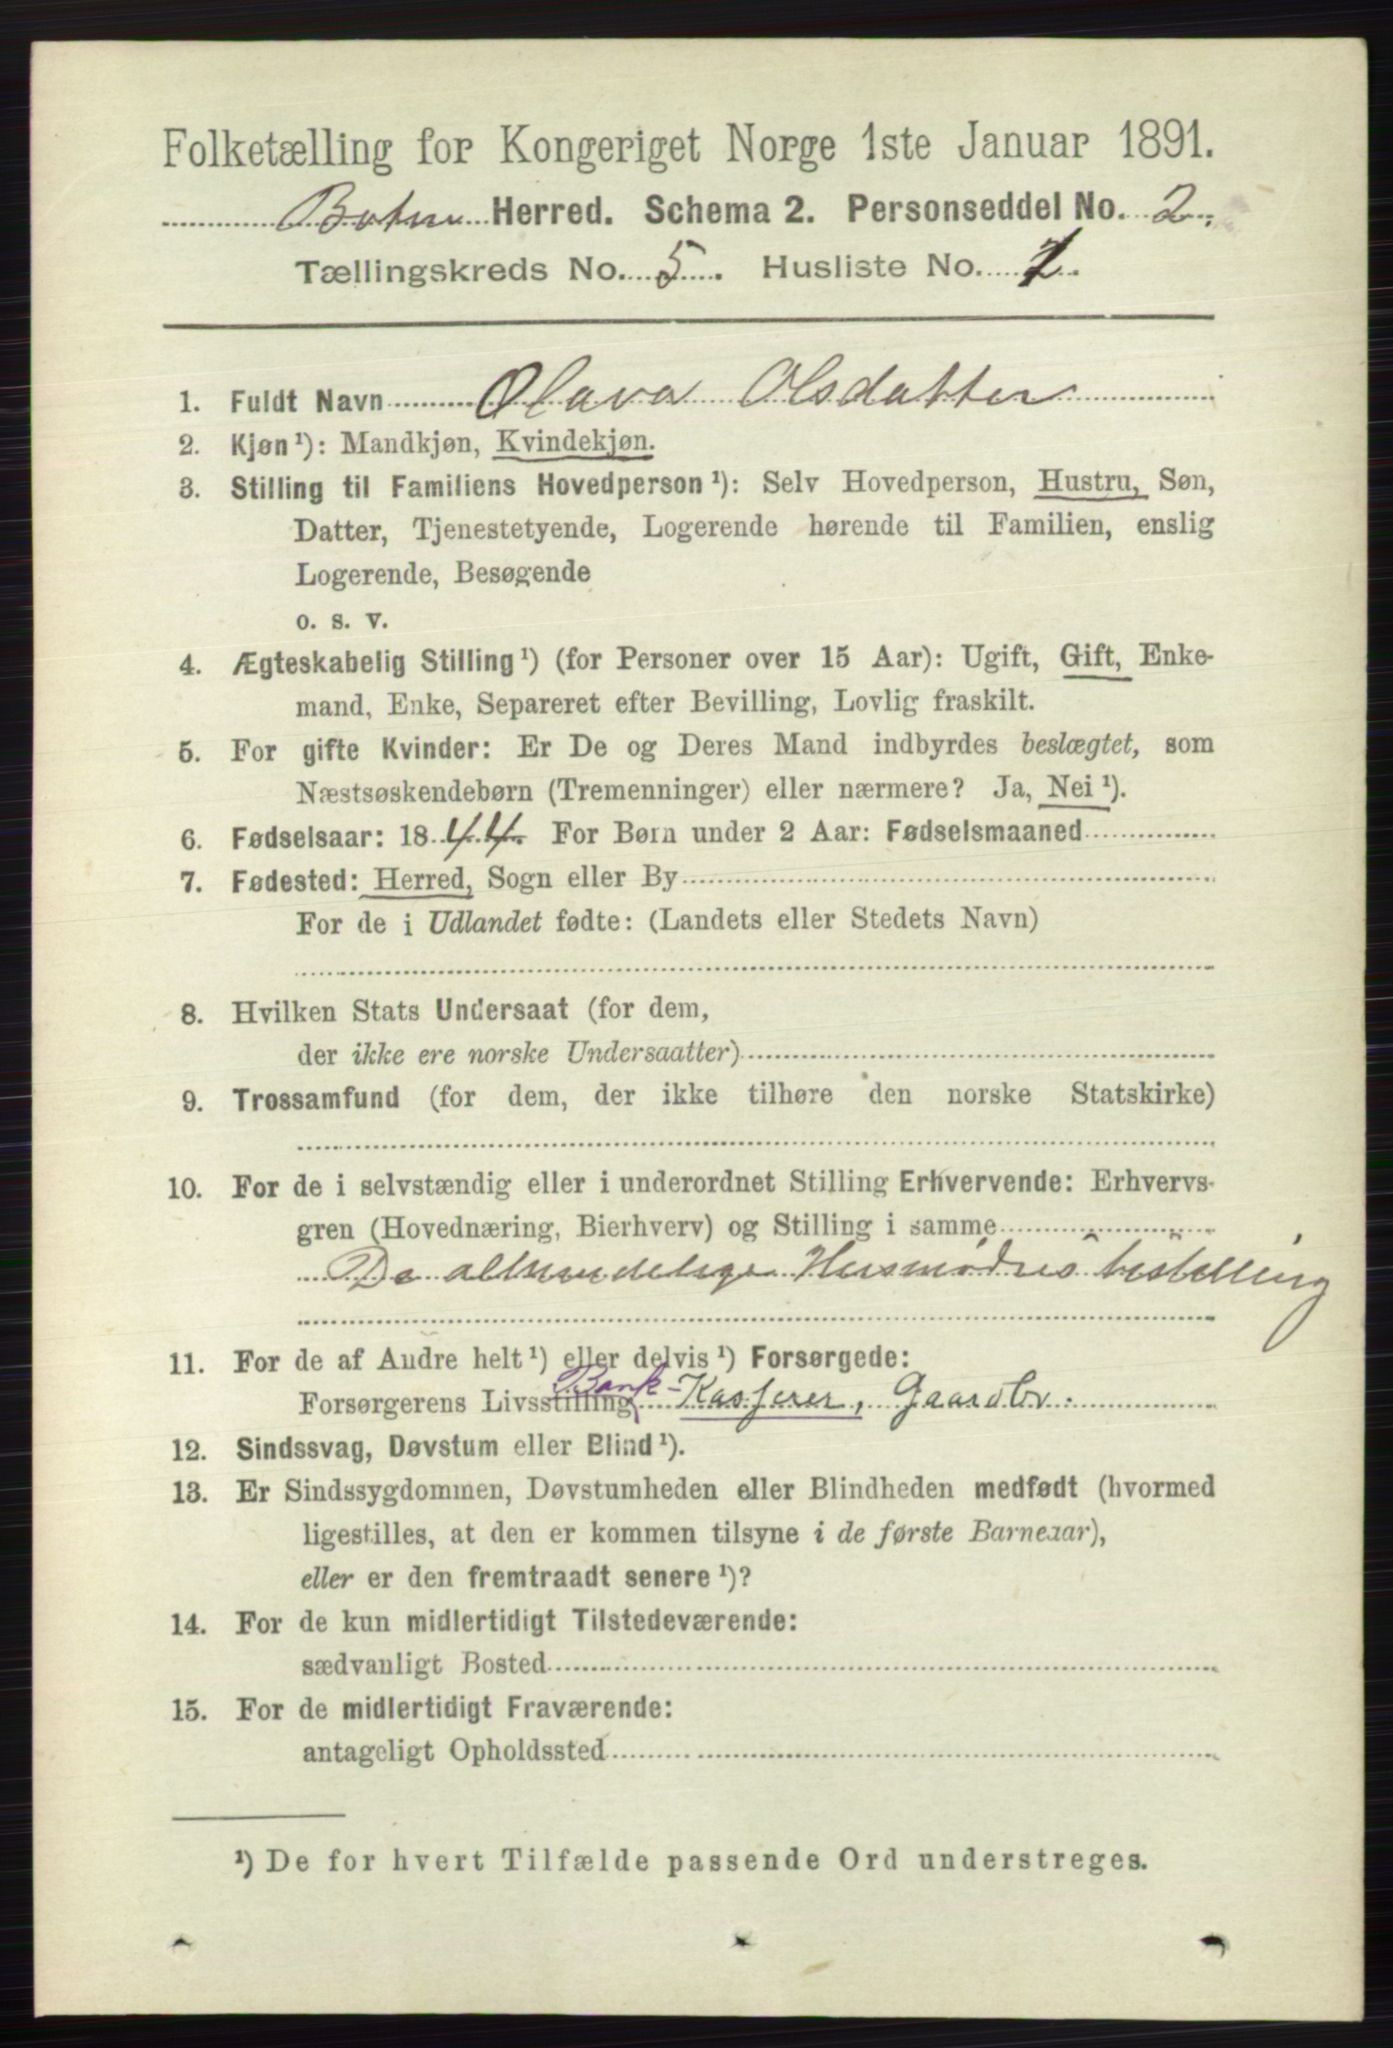 Folketælling for Kongeriget Norge 1ste Januar 1891.
Botne Herred. Schema 2. Personseddel No. 2.
Tællingskreds No. 5. Husliste No. 1.
1. Fuldt Navn Olava Olsdatter
2. Kjøn¹): Mandkjøn, Kvindekjøn.
3. Stilling til Familiens Hovedperson¹): Selv Hovedperson, Hustru, Søn,
Datter, Tjenestetyende, Logerende hørende til Familien, enslig
Logerende, Besøgende
o. s. v.
4. Ægteskabelig Stilling¹) (for Personer over 15 Aar): Ugift, Gift, Enke-
mand, Enke, Separeret efter Bevilling, Lovlig fraskilt.
5. For gifte Kvinder: Er De og Deres Mand indbyrdes beslægtet, som
Næstsøskendebørn (Tremenninger) eller nærmere? Ja, Nei¹).
6. Fødselsaar: 1844. For Børn under 2 Aar: Fødselsmaaned
7. Fødested: Herred, Sogn eller By
For de i Udlandet fødte: (Landets eller Stedets Navn)
8. Hvilken Stats Undersaat (for dem,
der ikke ere norske Undersaatter)
9. Trossamfund (for dem, der ikke tilhøre den norske Statskirke)
10. For de i selvstændig eller i underordnet Stilling Erhvervende: Erhvervs-
gren (Hovednæring, Bierhverv) og Stilling i samme
De almindelige Husmødres bestilling
11. For de af Andre helt¹) eller delvis¹) Forsørgede:
Forsørgerens Livsstilling Bank-Kasserer, Gaardbr.
12. Sindssvag, Døvstum eller Blind¹).
13. Er Sindssygdommen, Døvstumheden eller Blindheden medfødt (hvormed
ligestilles, at den er kommen tilsyne i de første Barneaar),
eller er den fremtraadt senere¹)?
14. For de kun midlertidigt Tilstedeværende:
sædvanligt Bosted
15. For de midlertidigt Fraværende:
antageligt Opholdssted
¹) De for hvert Tilfælde passende Ord understreges.